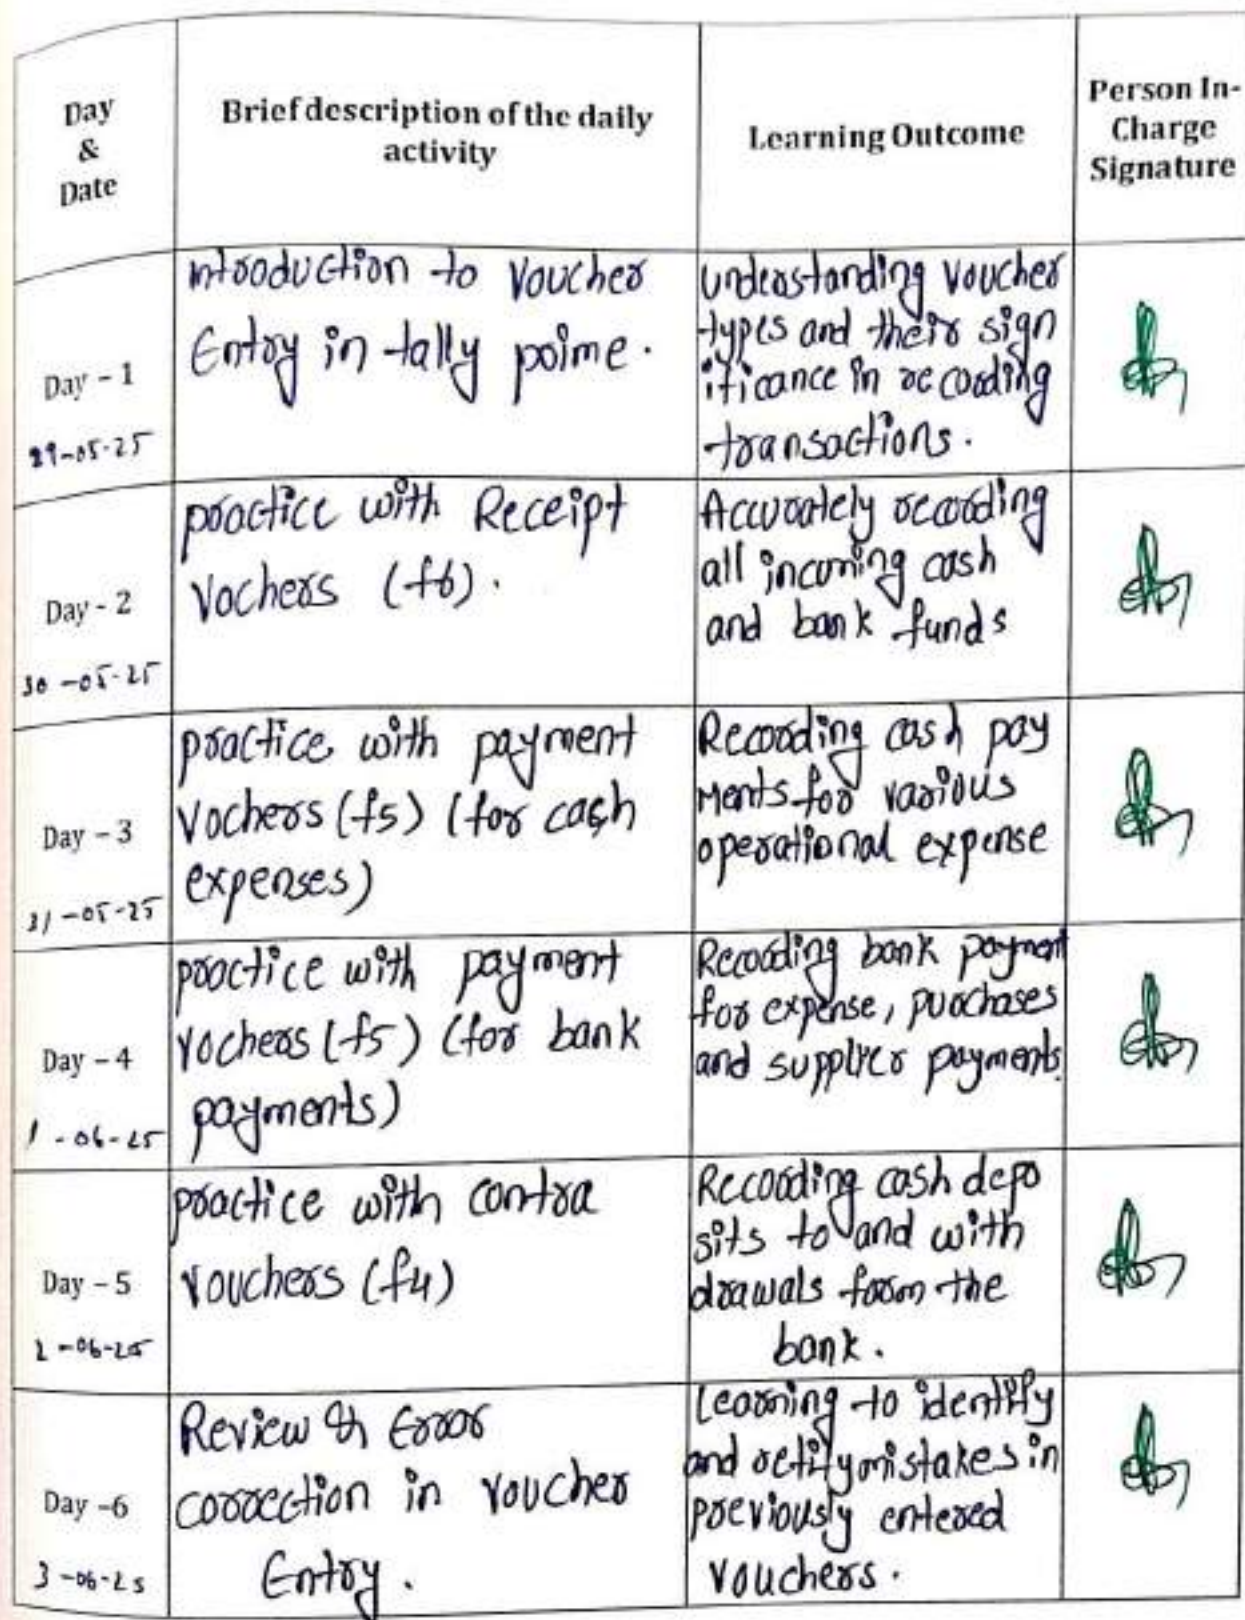 Day
&
Date
Brief description of the daily
activity
Learning Outcome
Person In-
Charge
Signature
Day - 1
29-05-25
introduction to Voucher
Entry in tally prime.
understanding voucher
types and their sign
ificance in recording
transactions.
Day - 2
30-05-25
practice with Receipt
Vochers (f6).
Accurately recording
all incoming cash
and bank funds
Day - 3
31-05-25
practice with payment
Vochers (f5) (for cash
expenses)
Recording cash pay
ments for various
operational expense
Day - 4
1-06-25
practice with payment
vochers (f5) (for bank
payments)
Recording bank payment
for expense, purchases
and supplier payments.
Day - 5
2-06-25
practice with contra
vouchers (f4)
Recording cash depo
sits to and with
drawals from the
bank.
Day -6
3-06-25
Review & Error
correction in voucher
Entry.
Learning to identify
and retify mistakes in
previously entered
vouchers.